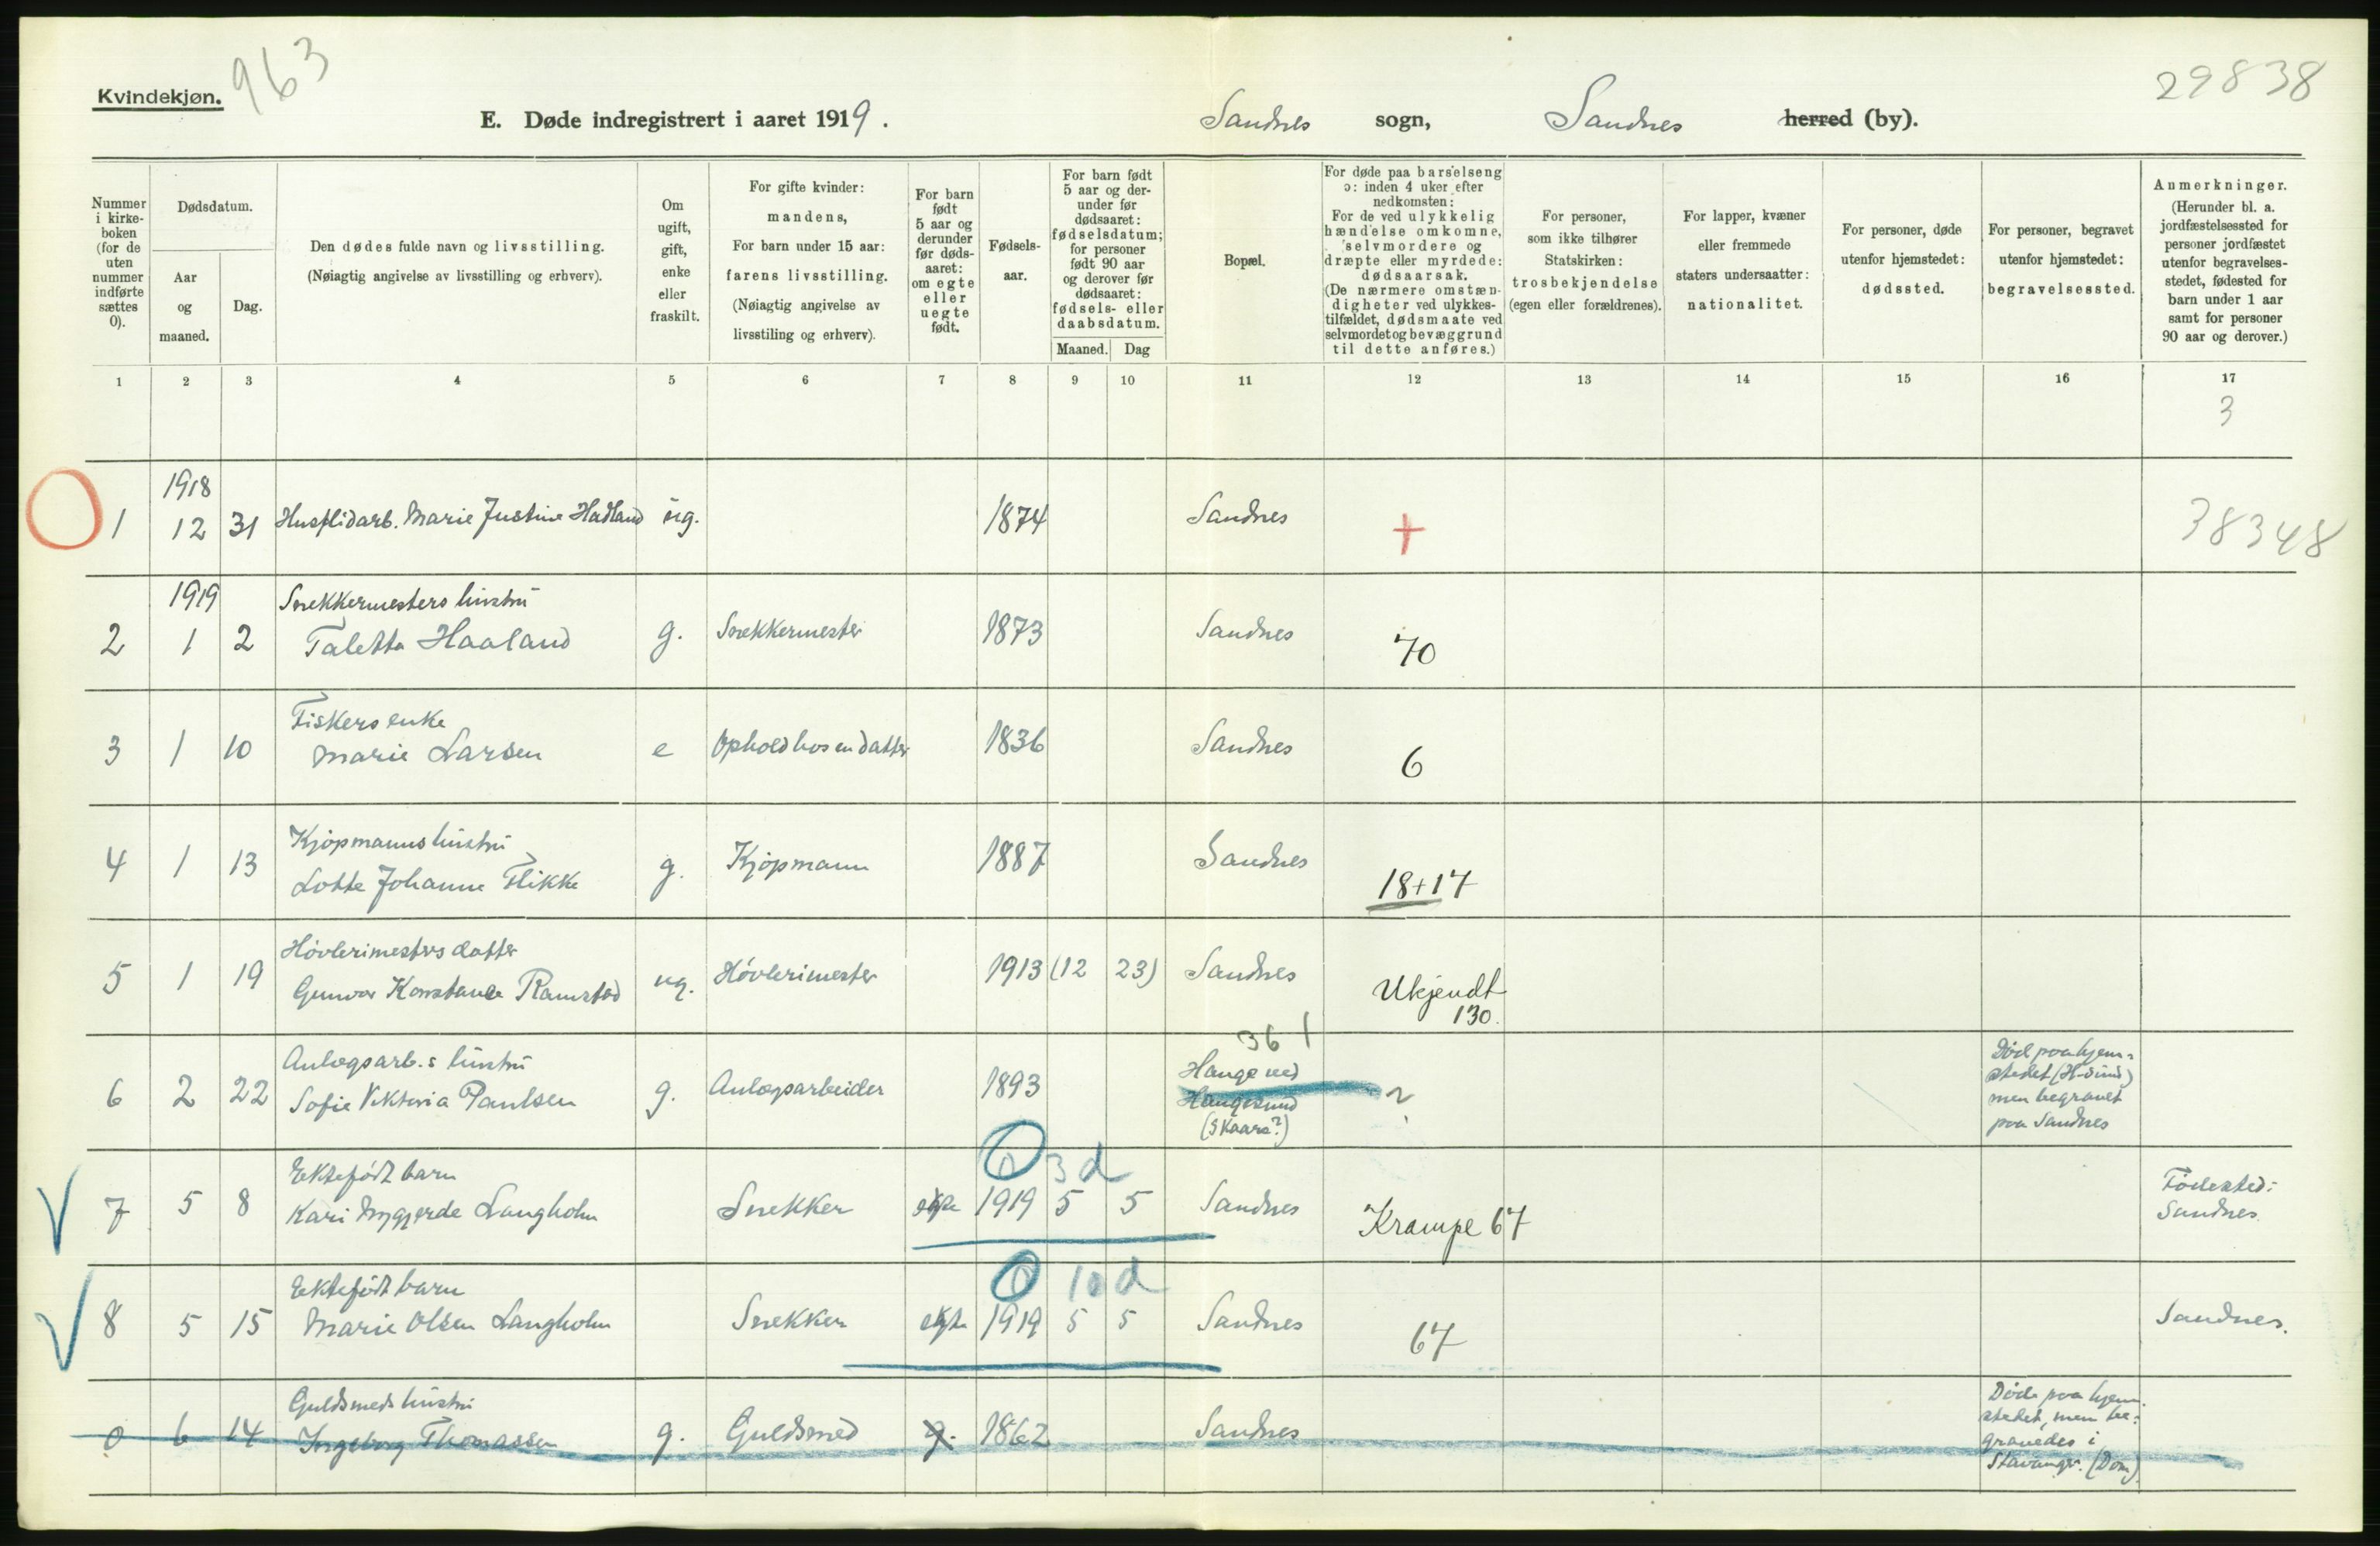 Kvindekjøn.
963
E. Døde indregistrert i aaret 1919.
Sandnes sogn, Sandnes herred (by).
29838
Nummer i kirke-boken (for de uten nummer indførte sættes 0).
Dødsdatum.
Aar og maaned.
Dag.
Den dødes fulde navn og livsstilling.
(Nøiagtig angivelse av livsstilling og erhverv).
Om ugift, gift, enke eller fraskilt.
For gifte kvinder: mandens,
For barn under 15 aar: farens livsstilling.
(Nøiagtig angivelse av livsstiling og erhverv).
For barn født 5 aar og derunder før døds-aaret: om egte eller uegte født.
Fødsels-aar.
For barn født 5 aar og der-under før dødsaaret: fødselsdatum; for personer født 90 aar og derover før dødsaaret: fødsels- eller daabsdatum.
Maaned.
Dag
Bopæl.
For døde paa barselseng ɔ: inden 4 uker efter nedkomsten:
For de ved ulykkelig hændelse omkomne, selvmordere og dræpte eller myrdede: dødsaarsak.
(De nærmere omstæn-digheter ved ulykkes-tilfældet, dødsmaate ved selvmordet og bevæggrund til dette anføres.)
For personer, som ikke tilhører Statskirken: trosbekjendelse (egen eller forældrenes).
For lapper, kvæner eller fremmede staters undersaatter: nationalitet.
For personer, døde utenfor hjemstedet: dødssted.
For personer, begravet utenfor hjemstedet: begravelsessted.
Anmerkninger.
(Herunder bl. a. jordfæstelsessted for personer jordfæstet utenfor begravelses-stedet, fødested for barn under 1 aar samt for personer 90 aar og derover.)
1 2 3 4 5 6 7 8 9 10 11 12 13 14 15 16 17
3
1918
1 12 31 Husflidarb. Marie Justine Hadland ug. 1874 Sandnes + 38348
1919 Snekkermesters hustru
2 1 2 Taletta Haaland g. Snekkermester 1873 Sandnes 70
Fiskers enke
3 1 10 Marie Larsen e Ophold hos en datter 1836 Sandnes 6
Kjøpmanns hustru
4 1 13 Lotte Johanne Flikke g. Kjøpmann 1887 Sandnes 18+17
Høvlerimesters datter
5 1 19 Gunvor Konstance Ramstad ug. Høvlerimester 1913 (12 23) Sandnes Ukjendt
130.
36 1
Anlægsarb.s hustru
6 2 22 Sofie Viktoria Paulsen g. Anlægsarbeider 1893 Hauge ved
Haugesund
(Skaare?)
?
Død paa hjem-
stedet (H-sund)
men begravet
paa Sandnes
0 3 d
Ektefødt barn
7 5 8 Kari Langholm Snekker ekte 1919 5 5 Sandnes Krampe 67
Fødested:
Sandnes
0 10 d
Ektefødt barn
8 5 15 Marie Olsen Langholm Snekker ekte 1919 5 5 Sandnes 67 Sandnes.
Guldsmeds hustru
0 6 14 Ingeborg Thomassen g. Guldsmed g. 1862 Sandnes
Døde paa hjem-
stedet, men be-
gravedes i
Stavanger. (Dom)